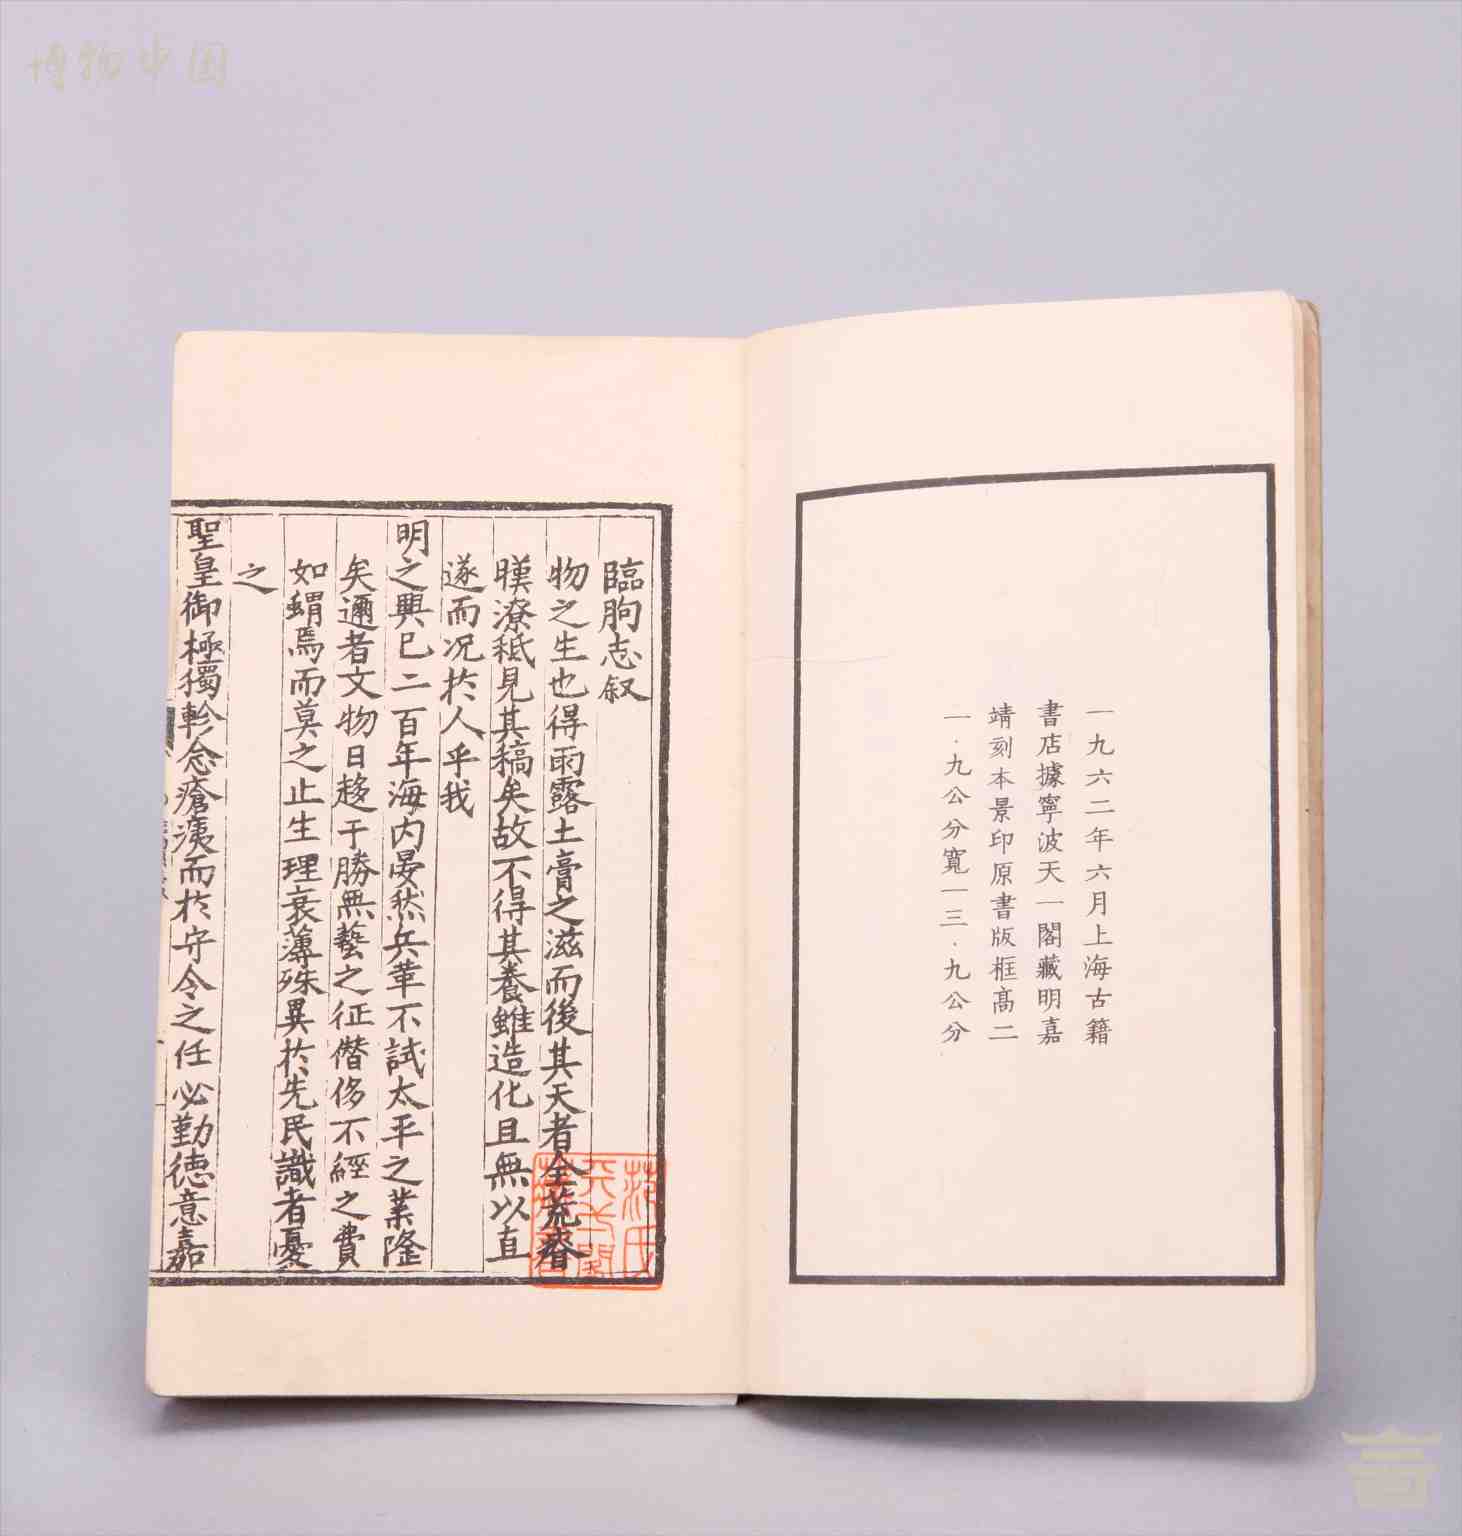 博物中国
一九六二年六月上海古籍
書店據寧波天一閣藏明嘉
靖刻本景印原書版框高二
一·九公分寬一三·九公分
臨朐志叙
物之生也得雨露土膏之滋而後其天者全荒瘠
暵潦秪見其稿矣故不得其養雖造化且無以直
遂而况扵人乎我
明之興巳二百年海内晏然兵革不試太平之業隆
矣邇者文物日趍于勝無藝之征僣侈不經之費
如蝟焉而莫之止生理衰薄殊異扵先民識者憂
之
聖皇御極獨軫念瘡痍而扵守令之任必勤徳意嘉
范氏
天一閣
藏書